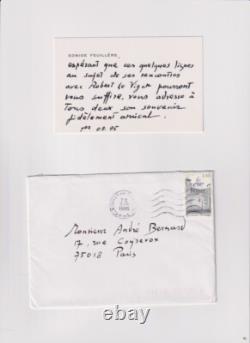 EDWIGE FEUILLÈRE
espérant que ces quelques lignes
au sujet de ses rencontres
avec Robert Le Vigan pourront
vous suffire, vous adresse à
tous deux son souvenir
fidèlement amical.
08.95
Monsieur André Bernard
17, rue Coysevox
75018
Paris